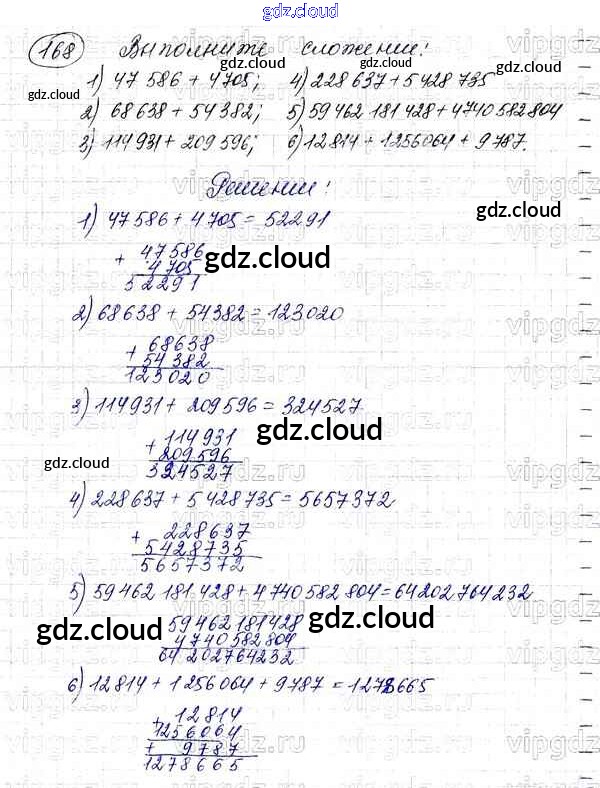 gdz.cloud
gdz.cloud
168 Выполните сложение:
1) 47 586 + 4705; 4) 228 637 + 5 428 735
gdz.cloud
2) 68638 + 54 382; 5) 59 462 181 428 + 4740 582 804
3) 114931 + 209 596; 6) 12814 + 1256064 + 9787.
Решение:
gdz.cloud
1) 47 586 + 4 705 = 52291
+ 47586
4705
52291
gdz.cloud
2) 68638 + 54382 = 123020
+ 68638
54382
123020
gdz.cloud
3) 114931 + 209596 = 324527
+ 114931
209596
324527
gdz.cloud
gdz.cloud
4) 228637 + 5 428 735 = 5657372
+ 228637
5428735
5657372
5) 59 462 181 428 + 4 740 582 804 = 64202764232
59462181428
4740582804
64 202764232
gdz.cloud
gdz.cloud
6) 12814 + 1 256 064 + 9787 = 1278665
+ 12814
1256064
+ 9787
1278665
vipgdz.ru